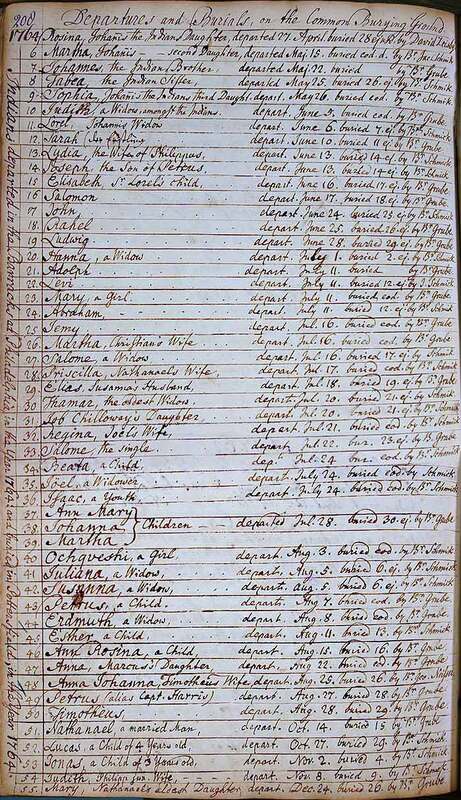 200
Departures and Burials, on the Common Burying Ground
1764 Rosina, Johanis the Indians Daughter, departed 27. April buried 28 by David
6 Martha, Johanis second Daughter, departed Maj. 15. buried eod. d. by Br. Jac. Schmick
7 Johannes, the Indian Brother, departed Maj. 22. buried by Br. Grube
8 the Indian Sister, departed May 25. buried 26. ej. by Schmick
9 Sophia, Johanis the Indians third Daught. depart. May 26. buried eod. by Br. Grube
10 Judith, a Widow amongst the Indians. depart. June 5. buried eod. by Br. Grube
11 Lorel, Johannis Widow depart. June 6. buried 7. ej. by Br.
12 Sarah depart. June 10. buried 11 ej. by Br. Grube
13 Lydia, the Wife of Philippus, depart. June 13. buried 14 ej. by Br. Schmick
14 Joseph, the Son of Petrus depart. June 13. buried 14 ej. by Br. Grube
15 Elisabeth, Sr. Lorels Child, depart. June 16. buried 17 ej. by Br. Grube
16 Salomon depart. June 17. buried 18 ej. by Br. Grube
17 John depart. June 24. buried 25 ej. by Br. Schmick
18 Rahel depart. June 25. buried 26 ej. by Br. Grube
19 Ludwig depart. June 28. buried 29. ej. by Br. Grube
20 Hanna, a Widow depart. July 1. buried 2. ej. by Br. Schmick
21 Adolph depart. July 11. buried by Br. Grube
22 Levi depart. July 11. buried 12 ej. by Br. Schmick
23 Mary, a Girl. depart. July 11. buried eod. by Br. Grube
24 Abraham, depart. July 11. buried 12 ej. by Br. Schmick
25 Jemy depart. Jul. 16. buried eod. by Br. Grube
26 Martha, Christian's Wife depart. Jul. 16. buried eod. by Br. Grube
27 Salome, a Widow depart. Jul. 16. buried 17 ej. by Schmick
28 Priscilla, Nathanael's Wife, depart. Jul. 17. buried eod. by Br. Schmick
29 Elias, Susanna's Husband, depart. Jul. 18. buried 19. ej. by Br. Grube
30 Thamar, the oldest Widow, depart. Jul. 20. buried 21. ej. by Br. Schmick
31 Job Chilloway's Daughter, depart. Jul. 20. buried 21. ej. by Br. Schmick
32 Regina, Joel's Wife, depart. Jul. 21. buried eod. by Br. Schmick
33 Salome, the Single. depart. Jul. 22. bur. 23. ej. by Br. Grube
34 Beata, a Child, dep. Jul. 24. bur eod. by Br. Grube
35 Joel, a Widower depart. July 24. buried eod. by Schmick
36 Isaac, a Youth, depart. July 24. buried eod. by Br. Schmick
37 Ann Mary
38 Johanna Children departed Jul. 28. buried 30. ej. by Br. Grube
39 Martha
40 Ochqueshi, a Girl depart. Aug. 3. buried eod. by Br. Grube
41 Juliana, a Widow, depart. Aug. 5. buried 6. ej. by Br. Schmick
42 Susanna, a Widow, depart. Aug. 5. buried 6. ej. by Br. Schmick
43 Petrus, a Child. depart. Aug. 7. buried eod. by Br. Grube
44 Erdmuth, a Widow, depart. Aug. 8. buried eod. by Br. Grube
45 Esther, a Child. depart. Aug. 11. buried 13. by Br. Schmick
46 Ann Rosina, a Child, depart. Aug. 15. buried 16. by Br. Grube
47 Anna, Marcus's Daughter, depart. Aug. 22. buried eod. by Br. Grube
48 Anna Johanna, Timotheus Wife, depart. Aug. 25. buried 26. by Br.
49 Petrus (alias Capt. Harris) depart. Aug. 27. buried 28 by Br. Grube
50 Timotheus, depart. Aug. 28. buried 29. by Br. Grube
51. Nathanael, a married Man, depart. Oct. 14. buried 15 by Br. Grube
52. Lucas, a Child of 4 Years old, depart. Oct. 27. buried 29. by Br. Schmick
53 Jonas, a Child of 3 Years old, depart. Nov. 2. buried 4. by Br. Schmick
54 Judith, Philip Wife depart. Nov. 8. buried 9. by Br. Schmick
55. Mary, Nathanael's eldest Daughter, depart. Dec. 24. buried 26. by Br. Schmick
Indians departed in the Barracks at Philadelphia in the Year 1764 and buried in Potters field, in the Year 1764